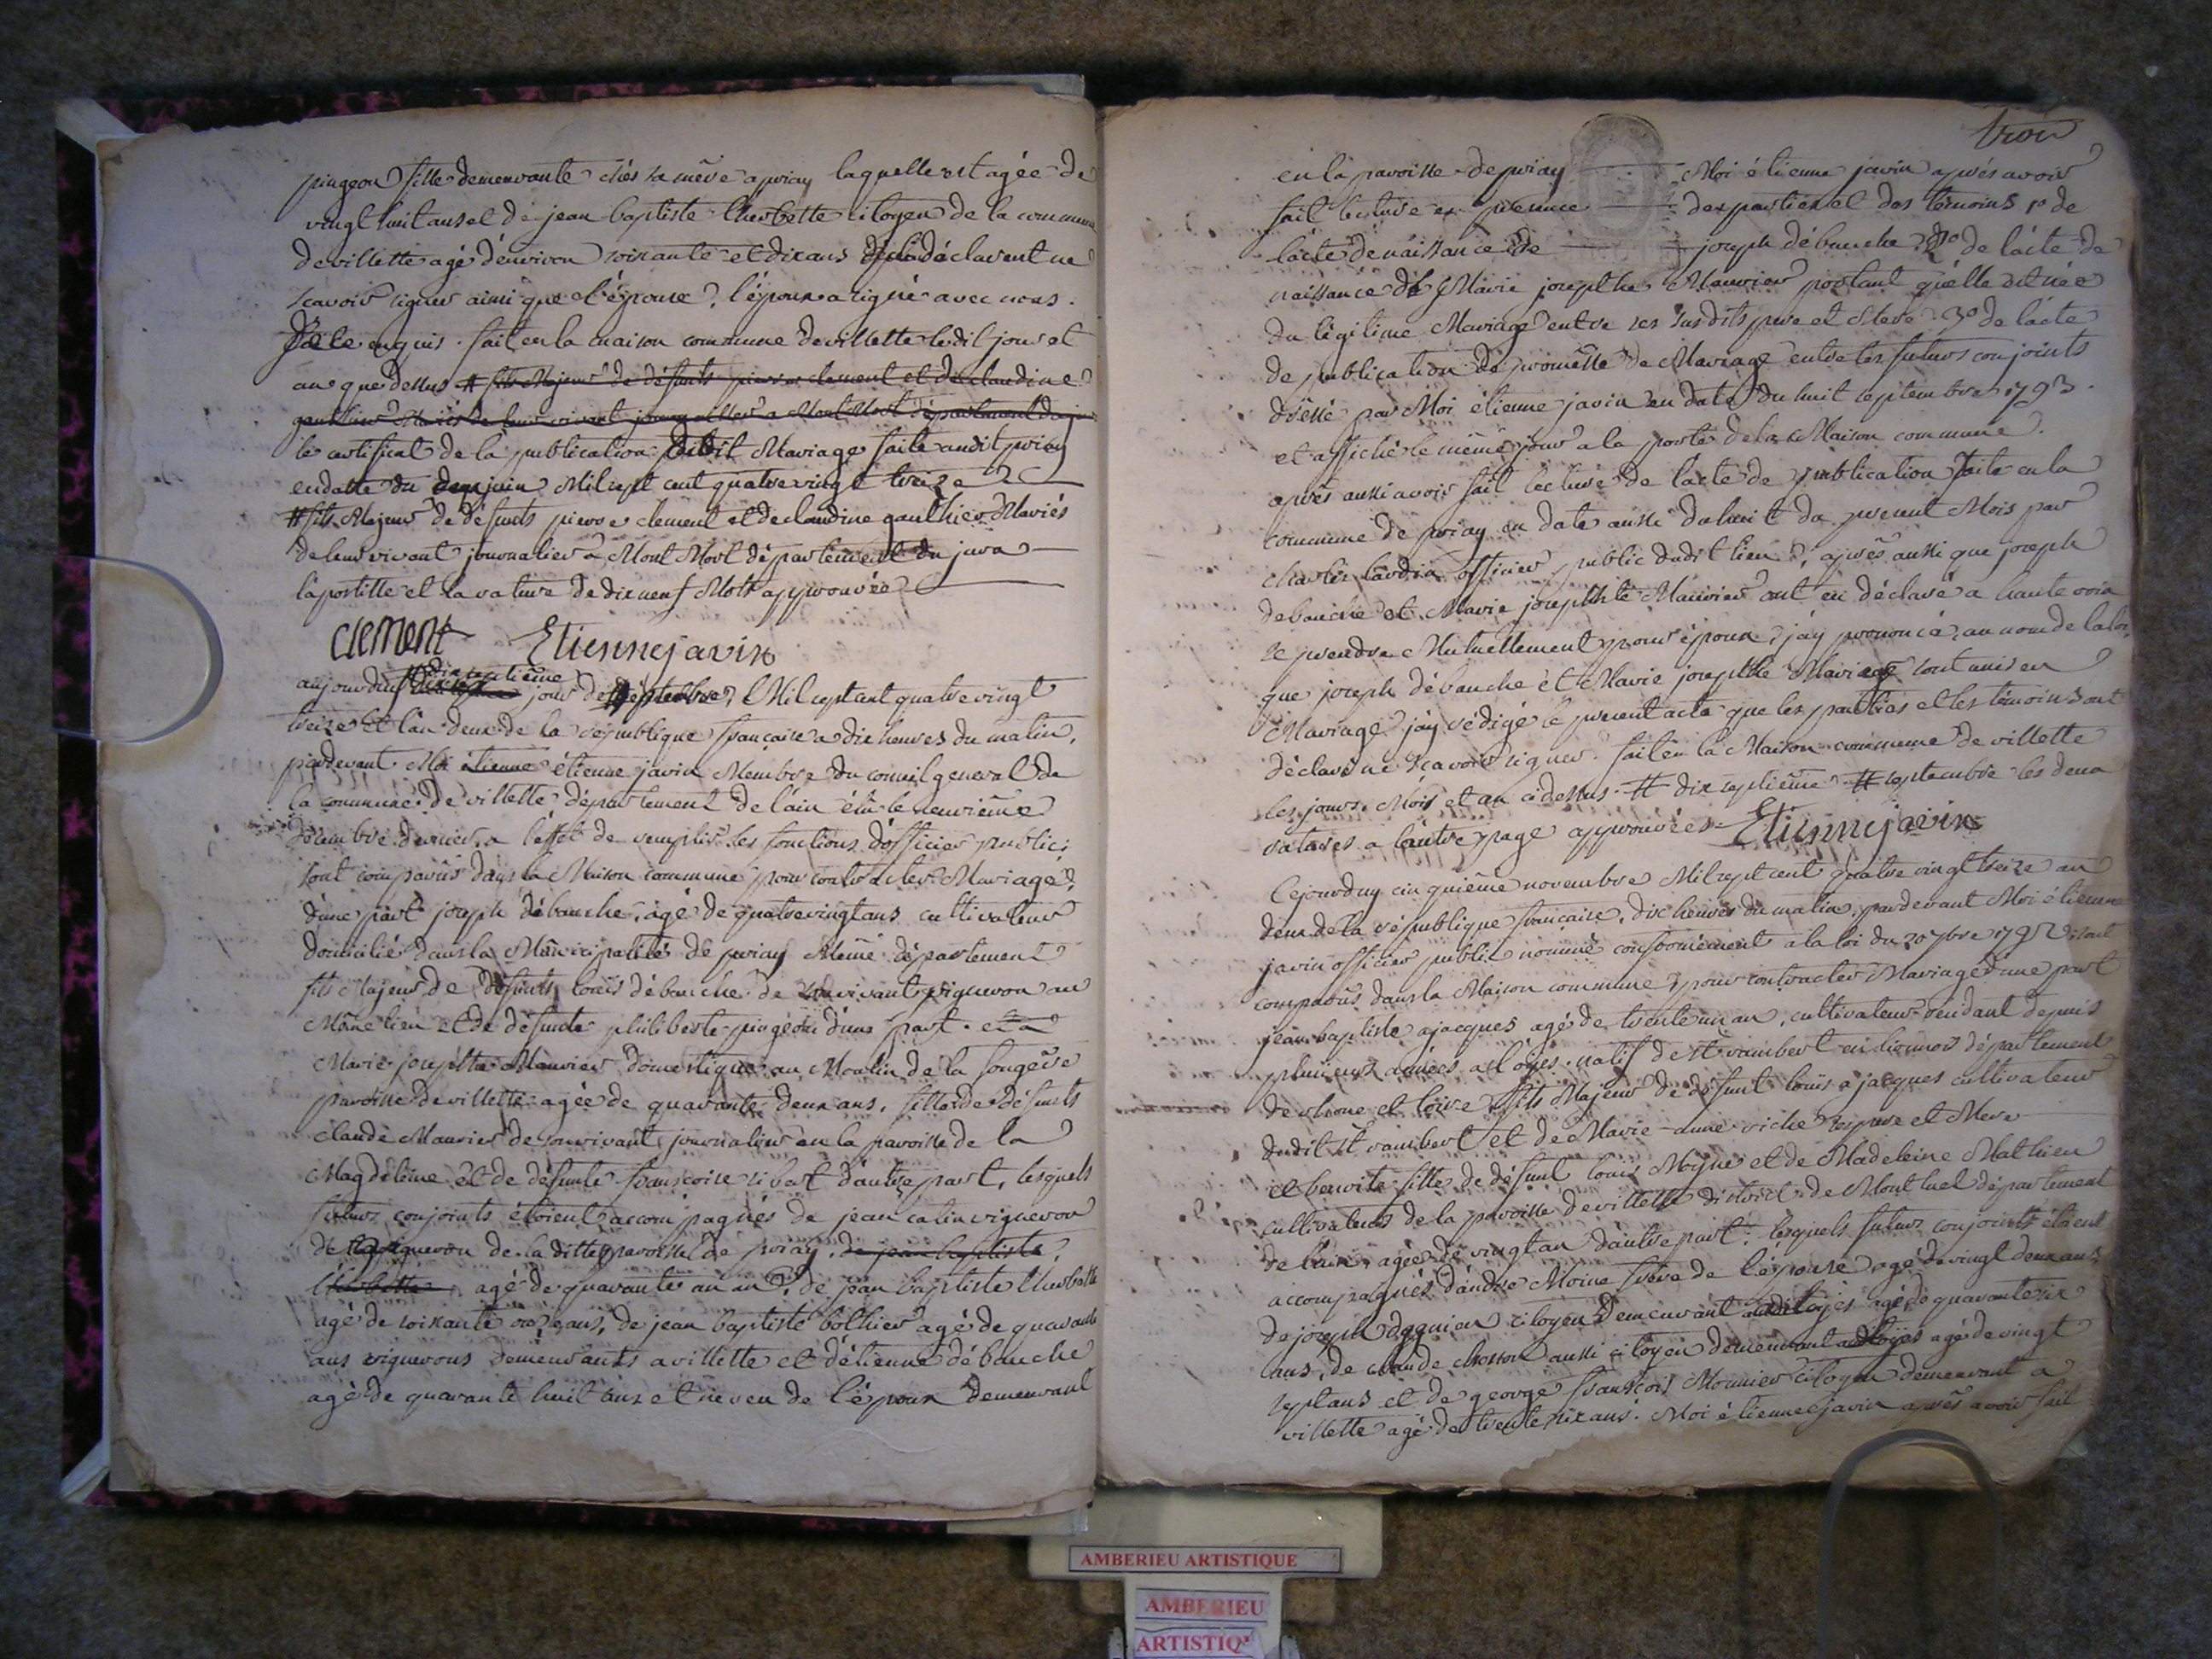 pingeon fille demeurante chés sa mère a priay laquelle est agée de
vingt huit ans et de jean baptiste Cherbette citoyen de la commune
de villette agé d'environ soixante et dix ans déclavent ne
scavoir signer ainsi que l'épouse, l'époux a signé avec nous.
de ce enquis. fait en la maison commune de villette ledit jour et
an que dessus # fils Majeur de défunts pierre clement et de claudine
gauthier Mariés de leur vivant journallier a Mont Mort département du jura
le certificat de la publication dudit Mariage faite audit priay
en datte du juin Mil sept cent quatre vingt treize
# fils Majeur de défunts pierre clement et de claudine gauthier Mariés
de leur vivant journalier a Mont Mort département du jura
l'apostille et la rature de dix neuf Mots approuvée
Clement Etienne javin
dixseptième
aujourdhuy jour de # septembre Mil sept cent quatre vingt
treize et l'an deux de la république française a dix heures du matin,
pardevant Moi etienne étienne javin Membre du conseil general de
la commune de villette département de l'ain élû le neuvième
décembre dernier a l'effet de remplir les fonctions d'officier public,
sont comparûs dans la Maison commune pour contracter Mariage,
d'une part joseph débauche, agé de quatre vingt ans cultivateur
domicilié dans la Municipalité de priay Même département
fils Majeur de défunts loüis débauche de son vivant vigneron au
Même lieu et de défunte philiberte pingeon d'une part. et a
Marie josephte Mauvier domestique au Moulin de la fongère
paroisse de villette agée de quarante deux ans, fille de défunts
claude Mauvier de son vivant journalier en la paroisse de la
Magdeleine et de défunte françoise ribert d'autre part, lesquels
futurs conjoints étoient accompagnés de jean catin vigneron
de vigneron de la ditte paroisse de priay, de jean baptiste
Cherbette agé de quarante un an, de jean baptiste Cherbette
agé de soixante onze ans, de jean baptiste bothier agé de quarante
ans vignerons demeurants a villette et d'étienne débauche
agé de quarante huit ans et neveu de l'époux demeurant
trois
en la paroisse de priay Moi étienne javin après avoir
fait lecture en présence des parties et des témoins 1º de
l'acte de naissance de joseph débauche 2º de l'acte de
naissance de Marie josephte Mauvier portant qu'elle est née
du légitime Mariage entre ses susdits père et Mere 3º de l'acte
de publication de promesse de Mariage entre les futurs conjoints
dressé par Moi étienne javin en date du huit septembre 1793.
et affiché le même jour a la porte de la Maison commune.
après aussi avoir fait lecture de l'acte de publication faite en la
commune de priay en date aussi du huit du present Mois par
charles officier public dudit lieu, après aussi que joseph
debauche et Marie josephte Mauvier ont eu déclaré a haute voix
se prendre Mutuellement pour époux, j'ay prononcé au nom de la loi,
que joseph débauche et Marie josephte Mauvier sont unis en
Mariage j'ay rédigé le present acte que les parties et les témoins ont
déclaré ne scavoir signer. fait en la Maison commune de villette
les jours, Mois et an cidessus. # dix septième # septembre les deux
ratures a l'autre page approuvées. Etienne javin
Cejourduy cinquième novembre Mil sept cent quatre vingt treize an
deux de la république française, dix heures du matin, pardevant Moi étienne
javin officier public nommé conformément a la loi du 20 7bre 1792 sont
comparûs dans la Maison commune pour contracter Mariage d'une part
jean baptiste ajacques agé de trente un an, cultivateur résidant depuis
plusieurs années a loyes, natif de st rambert en lionnois département
de rhone et loire fils Majeur de défunt loüis ajacques cultivateur
dudit st rambert et de Marie anne riche ses pere et Mere
et benoite fille de défunt louis Moyne et de Madeleine Mathieu
cultivateurs de la paroisse de villette district de Montluel département
de l'ain, agée de vingt an d'autre part. lesquels futurs conjoints étoient
accompagnés d'andre Moine frère de l'épouse agé de vingt deux ans,
de joseph citoyen demeurant audit loyes agé de quarante six
ans, de claude aussi citoyen demeurant audit loyes agé de vingt
sept ans et de george françois Monnier citoyen demeurant a
villette agé de trente six ans. Moi étienne javin après avoir fait
AMBERIEU ARTISTIQUE
AMBERIEU
ARTISTIQ